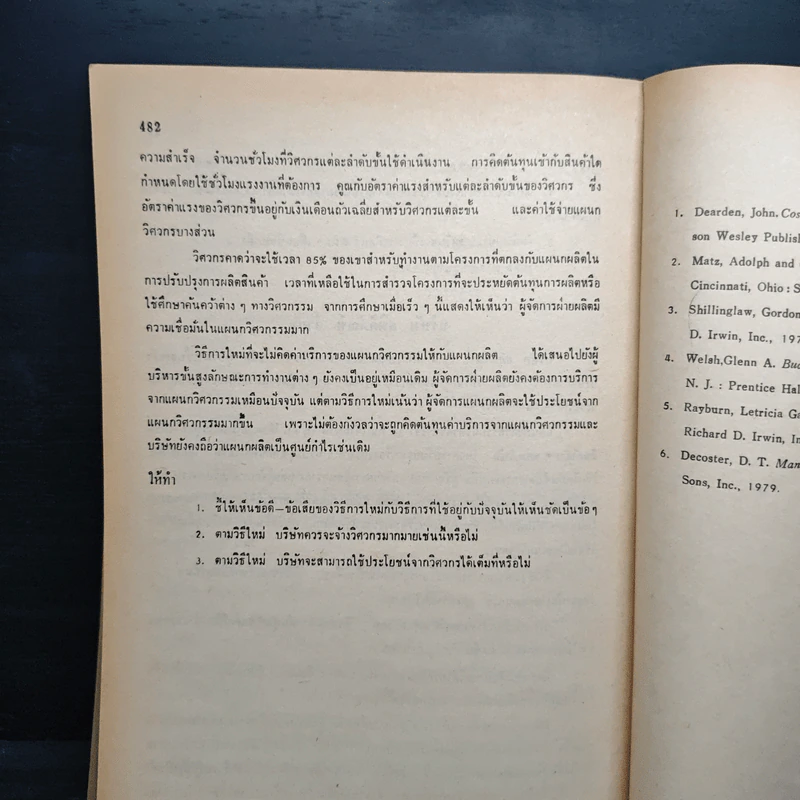 482
ความสำเร็จ จำนวนชั่วโมงที่วิศวกรแต่ละลำดับขั้นใช้ดำเนินงาน การคิดต้นทุนเข้ากับสินค้าใด
กำหนดโดยใช้ชั่วโมงแรงงานที่ต้องการ คูณกับอัตราค่าแรงสำหรับแต่ละลำดับขั้นของวิศวกร ซึ่ง
อัตราค่าแรงของวิศวกรขึ้นอยู่กับเงินเดือนถัวเฉลี่ยสำหรับวิศวกรแต่ละขั้น และค่าใช้จ่ายแผนก
วิศวกรบางส่วน
วิศวกรคาดว่าจะใช้เวลา 85% ของเขาสำหรับทำงานตามโครงการที่ตกลงกับแผนกผลิตใน
การปรับปรุงการผลิตสินค้า เวลาที่เหลือใช้ในการสำรวจโครงการที่จะประหยัดต้นทุนการผลิตหรือ
ใช้ศึกษาค้นคว้าต่าง ๆ ทางวิศวกรรม จากการศึกษาเมื่อเร็ว ๆ นี้แสดงให้เห็นว่า ผู้จัดการฝ่ายผลิตมี
ความเชื่อมั่นในแผนกวิศวกรรมมาก
วิธีการใหม่ที่จะไม่คิดค่าบริการของแผนกวิศวกรรมให้กับแผนกผลิต ได้เสนอไปยังผู้
บริหารขั้นสูงลักษณะการทำงานต่าง ๆ ยังคงเป็นอยู่เหมือนเดิม ผู้จัดการฝ่ายผลิตยังคงต้องการบริการ
จากแผนกวิศวกรรมเหมือนปัจจุบัน แต่ตามวิธีการใหม่เน้นว่า ผู้จัดการแผนกผลิตจะใช้ประโยชน์จาก
แผนกวิศวกรรมมากขึ้น เพราะไม่ต้องกังวลว่าจะถูกคิดต้นทุนค่าบริการจากแผนกวิศวกรรมและ
บริษัทยังคงถือว่าแผนกผลิตเป็นศูนย์กำไรเช่นเดิม
ให้ทำ
1. ชี้ให้เห็นข้อดี—ข้อเสียของวิธีการใหม่กับวิธีการที่ใช้อยู่กับปัจจุบันให้เห็นชัดเป็นข้อ ๆ
2. ตามวิธีใหม่ บริษัทควรจะจ้างวิศวกรมากมายเช่นนี้หรือไม่
3. ตามวิธีใหม่ บริษัทจะสามารถใช้ประโยชน์จากวิศวกรได้เต็มที่หรือไม่
1. Dearden, John. Cos
son Wesley Publish
2. Matz, Adolph and
Cincinnati, Ohio : S
3. Shillinglaw, Gordon
D. Irwin, Inc., 197
4. Welsh, Glenn A. Bud
N. J. : Prentice Hal
5. Rayburn, Letricia Ga
Richard D. Irwin, In
6. Decoster, D. T. Man
Sons, Inc., 1979.